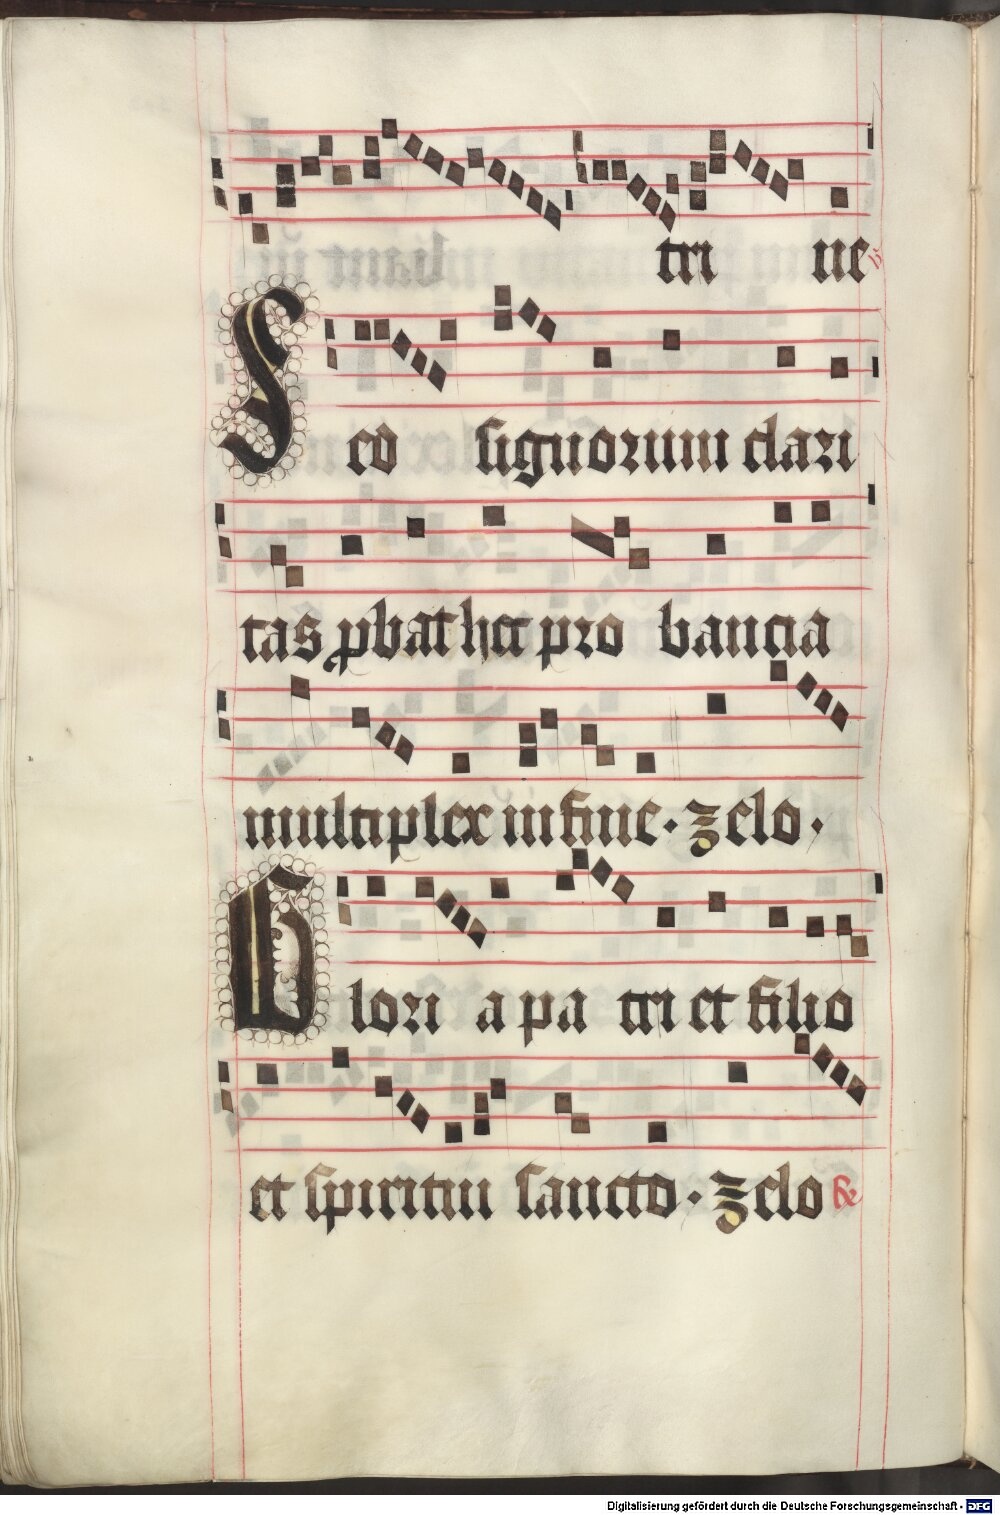 tri ne ℣
Sed signorum clari
tas ꝓbat hec pro bancia
multiplex in fine. Zelo.
Glori a pa tri et filio
et spiritui sancto. Zelo &
Digitalisierung gefördert durch die Deutsche Forschungsgemeinschaft - DFG